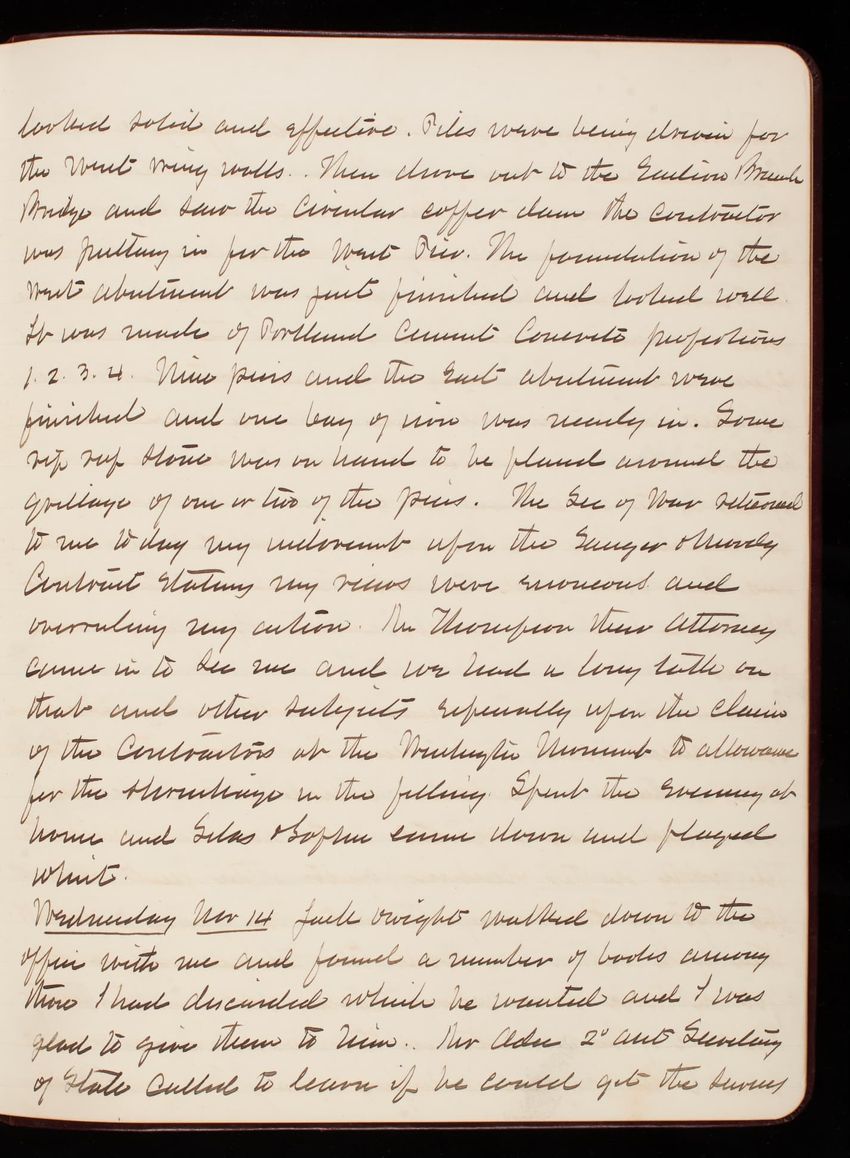 looked solid and effective. Piles were being driven for
the West wing walls. Then drove out to the Eastern Branch
Bridge and saw the Circular coffer dam the Contractor
was putting in for the West Pier. The foundation of the
West abutment was just finished and looked well.
It was made of Portland Cement Concrete proportions
1. 2. 3. 4. Nine piers and the East abutment were
finished and one bay of iron was nearly in. Some
rip rap stone was on hand to be placed around the
grillage of one or two of the piers. The Sec of War returned
to me to day my indorsmt upon the Sanger & Moody
Contract stating my views were erroneous and
overruling my action. Mr Thompson their Attorney
came in to see me and we had a long talk on
that and other subjects especially upon the claim
of the Contractors at the Washington Monumt to allowance
for the shrinkage in the filling. Spent the evening at
home and Silas & Sophie came down and played
whist.
Wednesday Nov 14 Jack Dwight walked down to the
office with me and found a number of books among
those I had discarded which he wanted and I was
glad to give them to him. Mr Adee 2d asst Secretary
of State called to learn if he could get the services